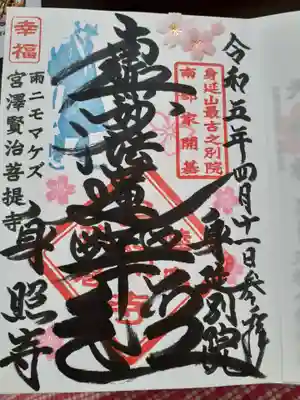 令和五年四月十一日参拝
身延山最古之別院
南部家開基
身延別院
南無妙法蓮華経
幸福
雨ニモマケズ
宮澤賢治菩提寺
身照寺